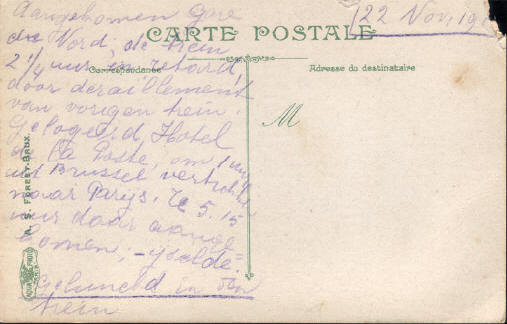 22 Nov. 191
CARTE POSTALE
Correspondance
Adresse du destinataire
M
Aangekomen Gare
du Nord, de trein
2 1/4 uur en retard
door deraillement
van vorigen trein.
Gelogeerd Hotel
de la Poste, om 1 uur
uit Brussel vertrokken
naar Parijs. Te 5.15
uur daar aange
komen,
Geluncht in den
trein
A. S. FERESY-BRUX.